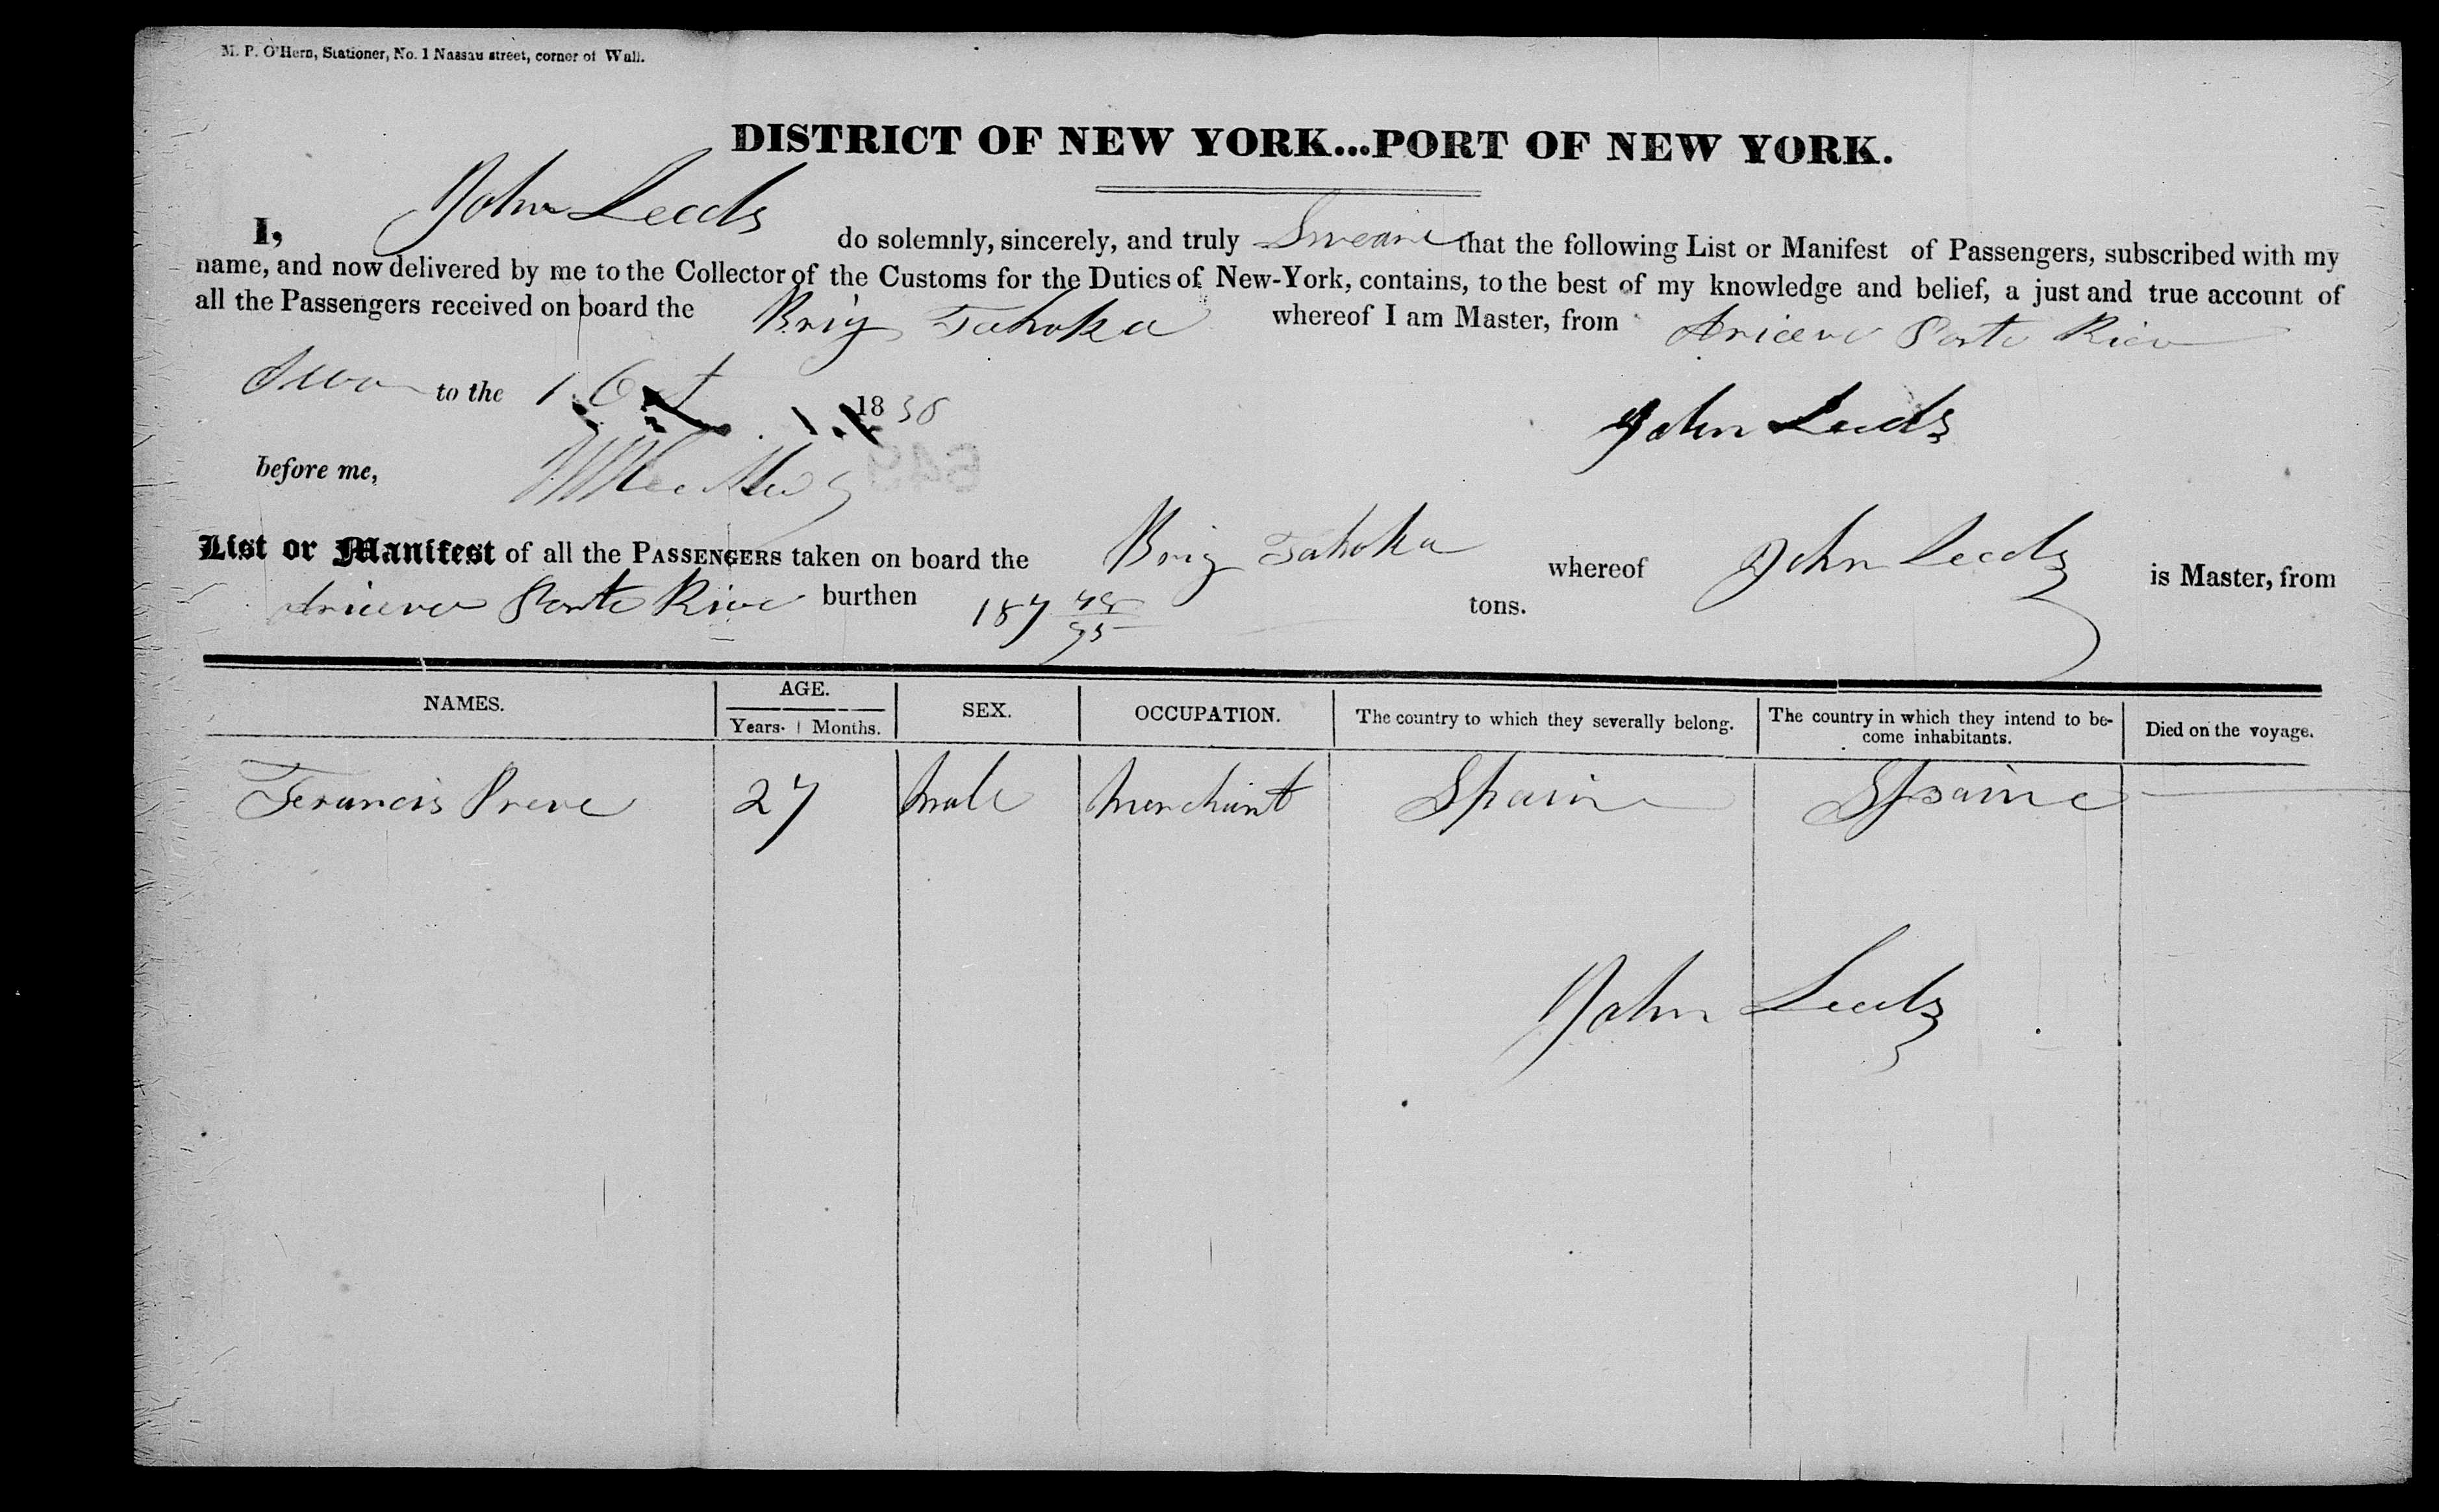 M. P. O'Hern, Stationer, No. 1 Nassau street, corner of Wall.
DISTRICT OF NEW YORK...PORT OF NEW YORK.
I, John Leeds do solemnly, sincerely, and truly Sweare that the following List or Manifest of Passengers, subscribed with my
name, and now delivered by me to the Collector of the Customs for the Duties of New-York, contains, to the best of my knowledge and belief, a just and true account of
all the Passengers received on board the Brig Tahoka whereof I am Master, from Aricevo Porto Rico
Swor to the 1 Oct 1838 John Leeds
before me,
List or Manifest of all the PASSENGERS taken on board the Brig Tahoka whereof John Leeds is Master, from
Aricevo Porto Rico burthen 187 tons.
NAMES. AGE. Years. Months. SEX. OCCUPATION. The country to which they severally belong. The country in which they intend to become inhabitants. Died on the voyage.
Francis Preve 27 Male Merchant Spain Spaine
John Leeds